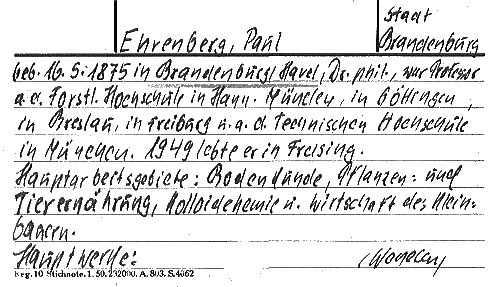 Stadt
Ehrenberg, Paul Brandenburg
geb. 16. 5. 1875 in Brandenburg/Havel, Dr. phil., war Professor
a. d. Forstl. Hochschule in Hann. Münden, in Göttingen,
in Breslau, in Freiburg u. a. d. Technischen Hochschule
in München. 1949 lebte er in Freising.
Hauptarbeitsgebiete: Bodenkunde, Pflanzen- und
Tierernährung, Kolloidchemie u. Wirtschaft des Klein-
bauern.
Hauptwerke:
Krg. 10 Stichnote. 1. 50. 232000. A. 803. S. 4062